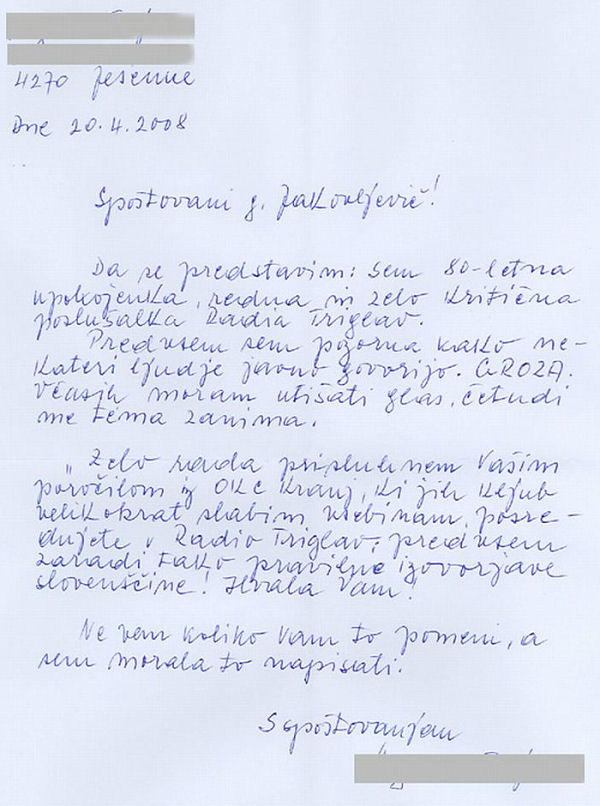 4270 Jesenice
Dne 20.4.2008
Spoštovani g. Jakovljević!
Da se predstavim: sem 80-letna
upokojenka, redna in zelo kritična
poslušalka Radia Triglav.
Predvsem sem pozorna kako ne-
kateri ljudje javno govorijo. GROZA.
Včasih moram utišati glas, četudi
me tema zanima.
Zelo rada prisluhnem Vašim
poročilom iz OKC Kranj, ki jih kljub
velikokrat slabim vsebinam, posre-
dujete v Radio Triglav, predvsem
zaradi tako pravilne izgovorjave
slovenščine! Hvala Vam!
Ne vem koliko Vam to pomeni, a
sem morala to napisati.
S spoštovanjem